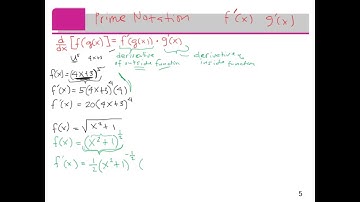 Prime Notation f'(x) g'(x)
d/dx [f(g(x))] = f'(g(x)) · g'(x)
derivative of outside function
derivative of inside function
u⁵ 4x+3
f(x) = (4x+3)⁵
f'(x) = 5(4x+3)⁴(4)
f'(x) = 20(4x+3)⁴
f(x) = √(x²+1)
f(x) = (x²+1)^½
f'(x) = ½(x²+1)^-½ (
5